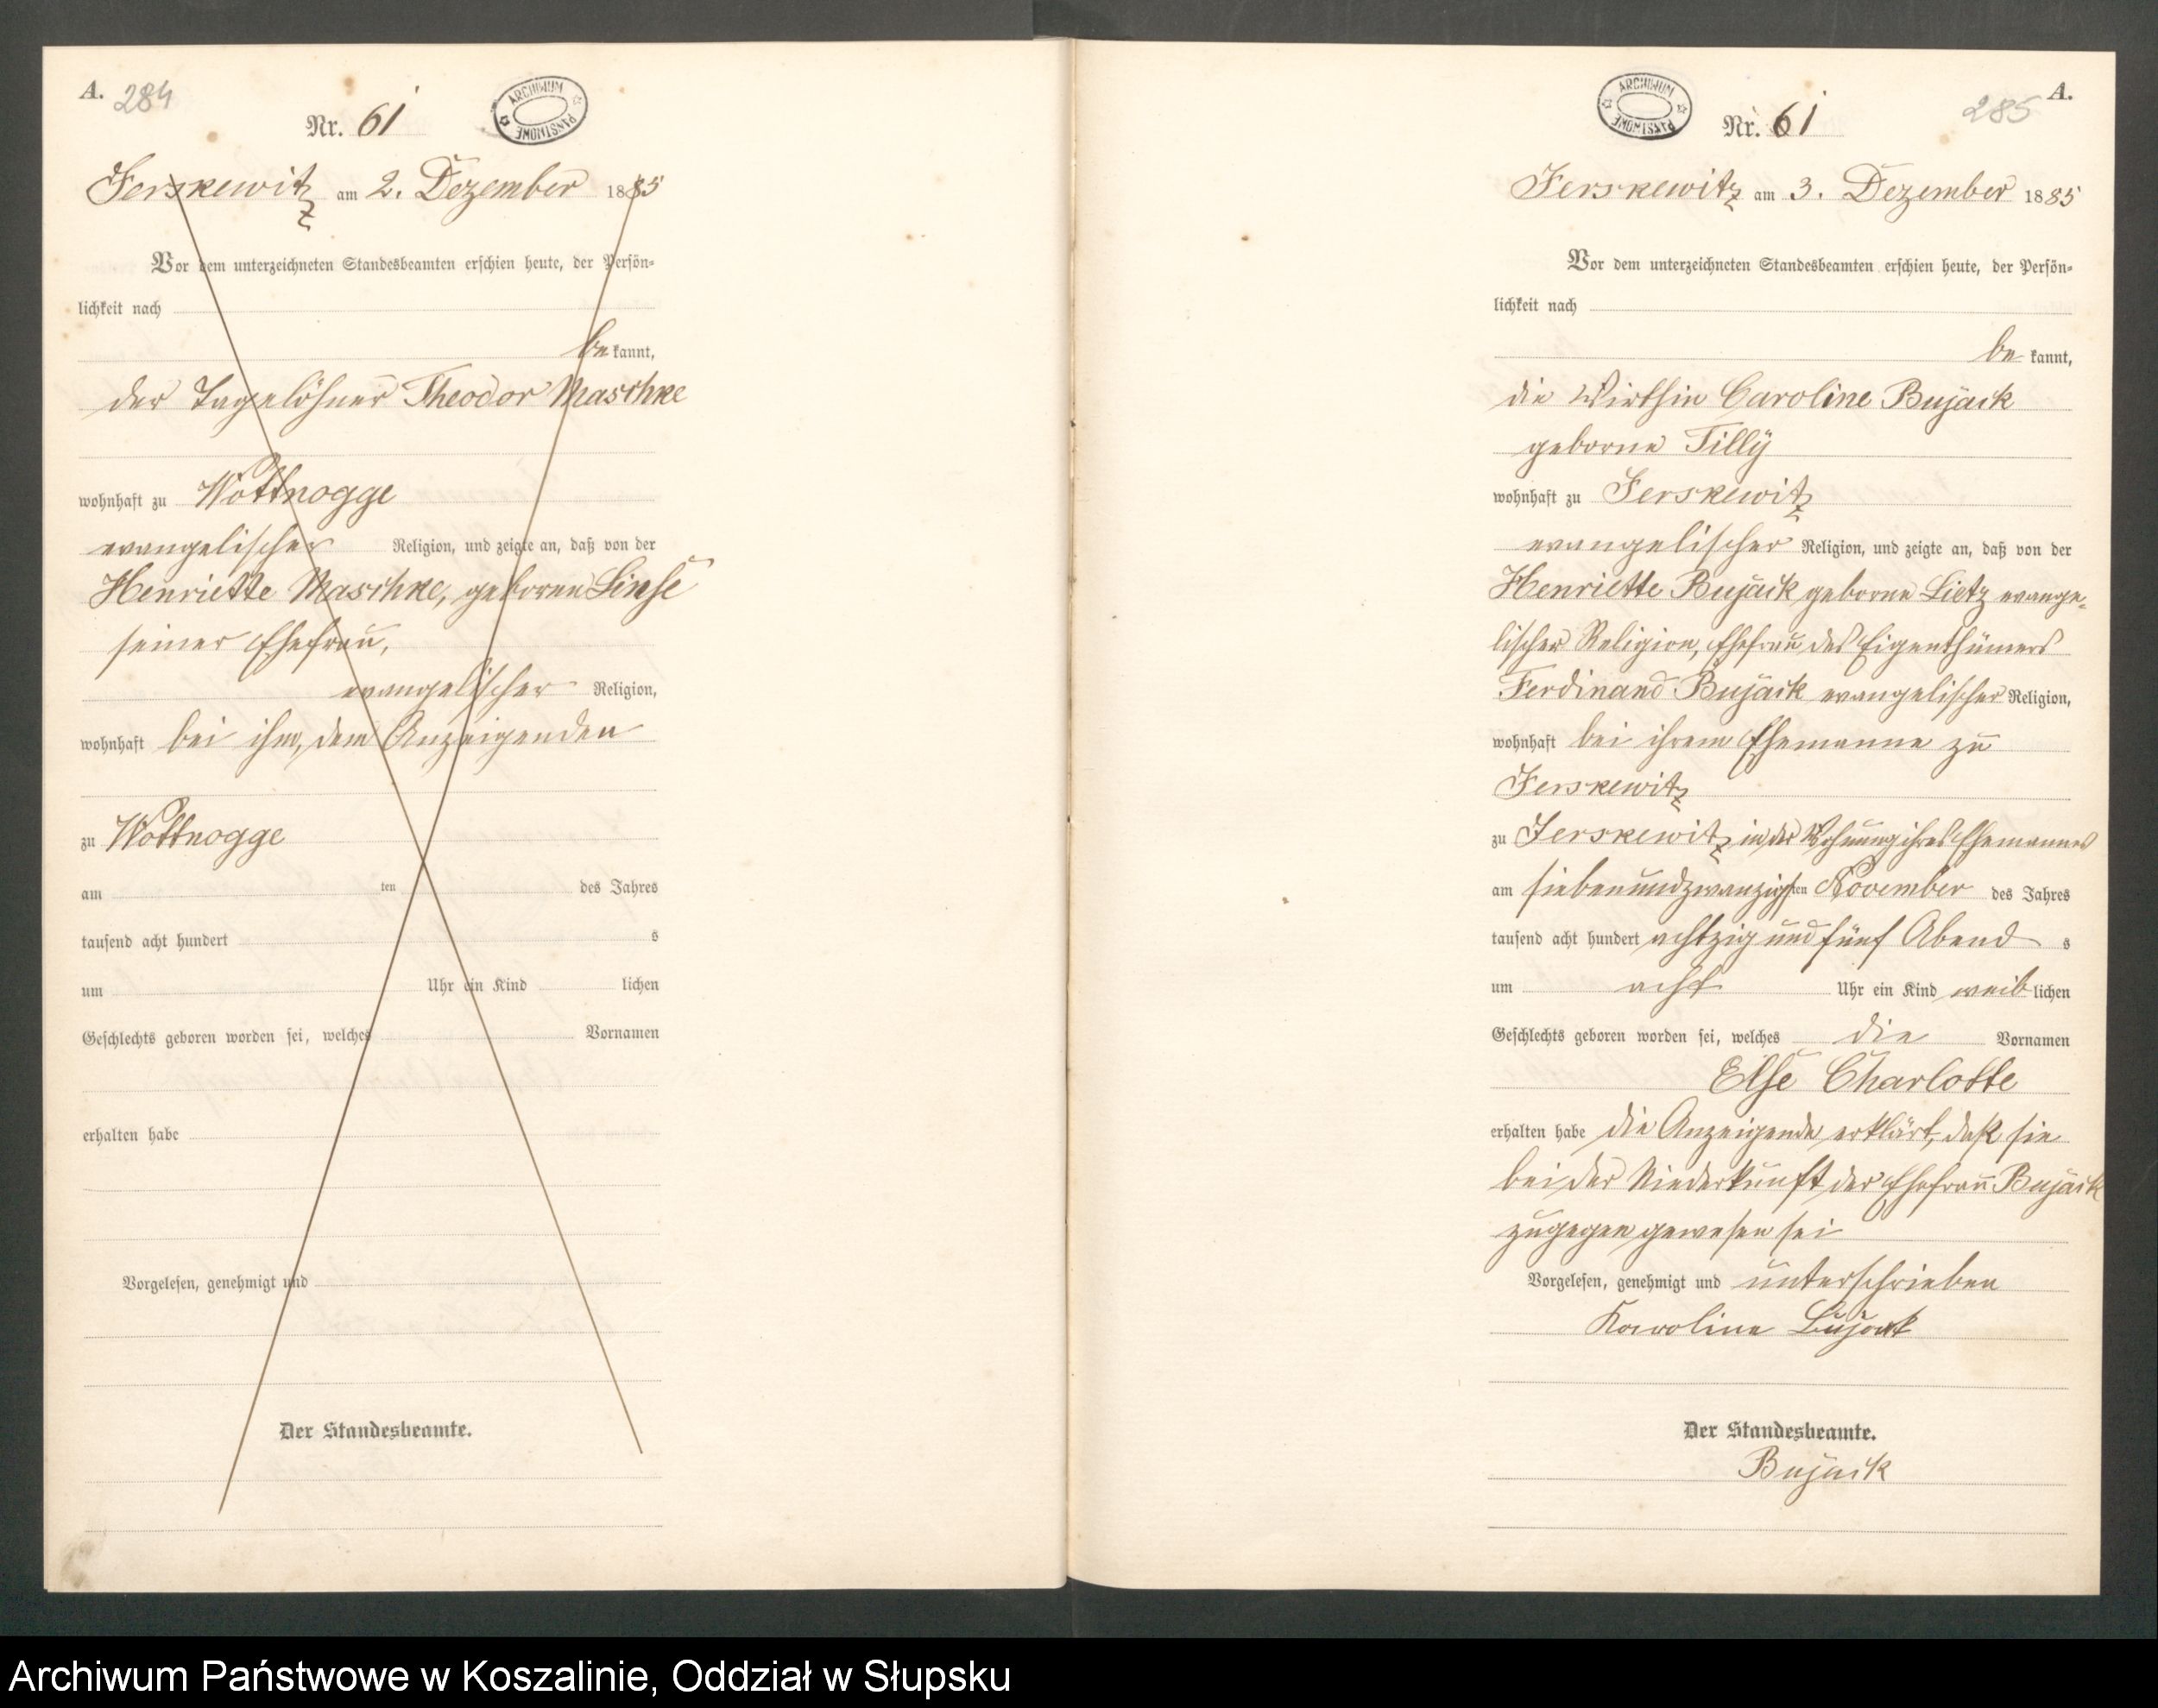 A. 284
ARCHIWUM PAŃSTWOWE
Nr. 61
Jerskewitz am 2. Dezember 1885
Vor dem unterzeichneten Standesbeamten erschien heute, der Persön-
lichkeit nach
be kannt,
der Tagelöhner Theodor Maschke
wohnhaft zu Wottnogge
evangelischer Religion, und zeigte an, daß von der
Henriette Maschke, geboren Linse
seiner Ehefrau,
evangelischer Religion,
wohnhaft bei ihm, dem Anzeigenden
zu Wottnogge
am ten des Jahres
tausend acht hundert s
um Uhr ein Kind lichen
Geschlechts geboren worden sei, welches Vornamen
erhalten habe
Vorgelesen, genehmigt und
Der Standesbeamte.
ARCHIWUM PAŃSTWOWE
285 A.
Nr. 61
Jerskewitz am 3. Dezember 1885
Vor dem unterzeichneten Standesbeamten erschien heute, der Persön-
lichkeit nach
be kannt,
die Wirthin Caroline Bujack
geborne Tilly
wohnhaft zu Jerskewitz
evangelischer Religion, und zeigte an, daß von der
Henriette Bujack geborne Lietz evange-
lischer Religion, Ehefrau des Eigenthümers
Ferdinand Bujack evangelischer Religion,
wohnhaft bei ihrem Ehemanne zu
Jerskewitz
zu Jerskewitz in der Wohnung ihres Ehemannes
am siebenundzwanzigsten November des Jahres
tausend acht hundert achtzig und fünf Abend s
um acht Uhr ein Kind weib lichen
Geschlechts geboren worden sei, welches die Vornamen
Else Charlotte
erhalten habe die Anzeigende erklärt, daß sie
bei der Niederkunft der Ehefrau Bujack
zugegen gewesen sei
Vorgelesen, genehmigt und unterschrieben
Karoline Bujack
Der Standesbeamte.
Bujack
Archiwum Państwowe w Koszalinie, Oddział w Słupsku